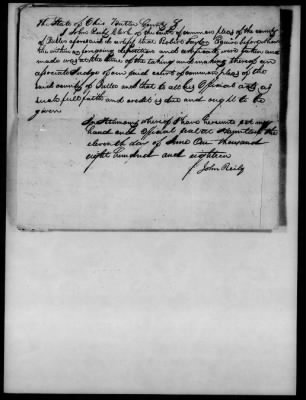 The State of Ohio Butler County }
I John Reily Clerk of the court of common pleas of the county
of Butler aforesaid do certify that Robert Taylor Esquire before whom
the within & foregoing deposition and were taken and
made was at the time of the taking and making thereof an
associate Judge of our said court of common pleas of the
said county of Butler and that to all his official acts as
such full faith and credit is due and ought to be
given
In Testimony whereof I have hereunto set my
hand and official seal at Hamilton the
eleventh day of June One thousand
eight hundred and eighteen
John Reily